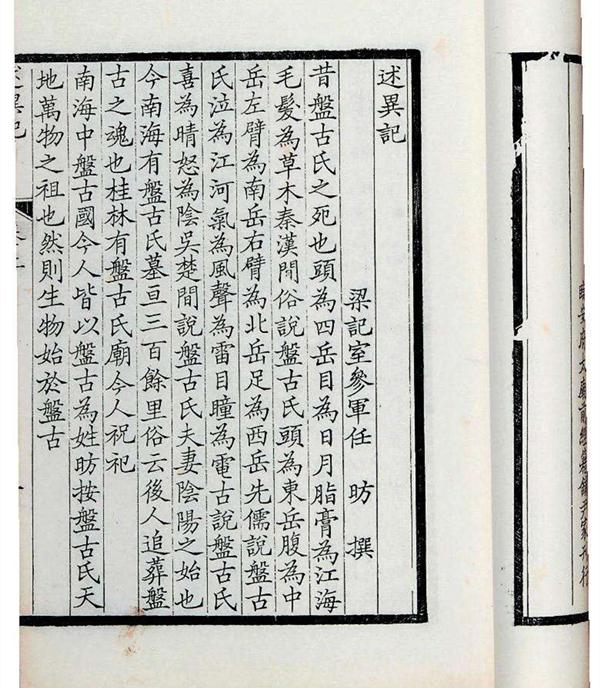 臨安府太廟前經籍鋪尹家刊行
述異記
梁記室參軍任 昉 撰
昔盤古氏之死也頭為四岳目為日月脂膏為江海
毛髮為草木秦漢間俗說盤古氏頭為東岳腹為中
岳左臂為南岳右臂為北岳足為西岳先儒說盤古
氏泣為江河氣為風聲為雷目瞳為電古說盤古氏
喜為晴怒為陰吳楚間說盤古氏夫妻陰陽之始也
今南海有盤古氏墓亘三百餘里俗云後人追葬盤
古之魂也桂林有盤古氏廟今人祝祀
南海中盤古國今人皆以盤古為姓昉按盤古氏天
地萬物之祖也然則生物始於盤古
述異記